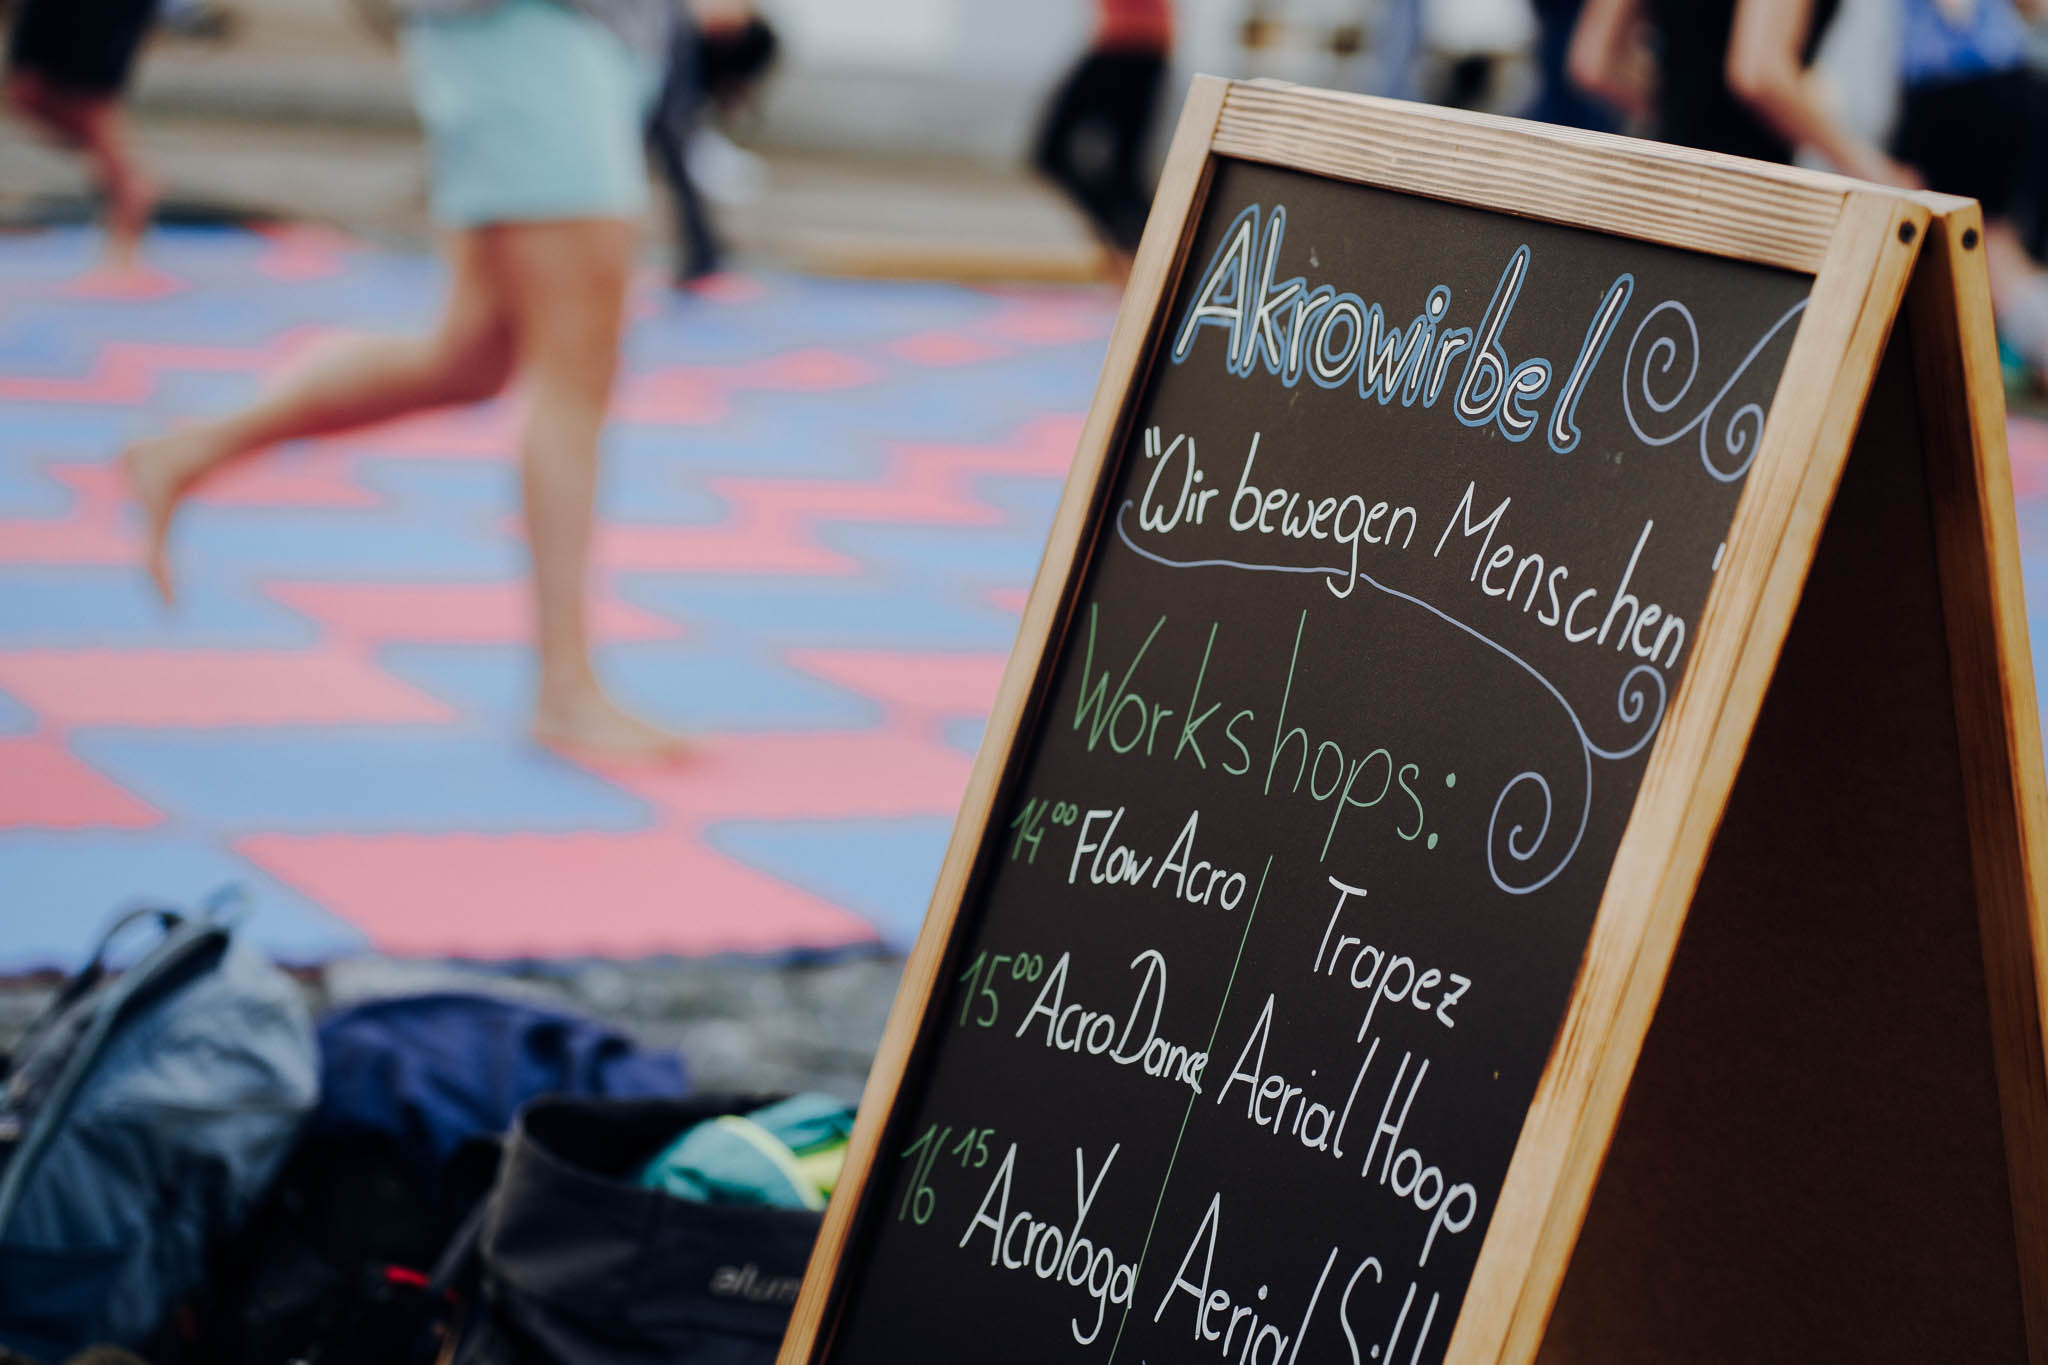 Akrowirbel
"Wir bewegen Menschen"
Workshops:
14⁰⁰ Flow Acro Trapez
15⁰⁰ AcroDance Aerial Hoop
16¹⁵ AcroYoga Aerial